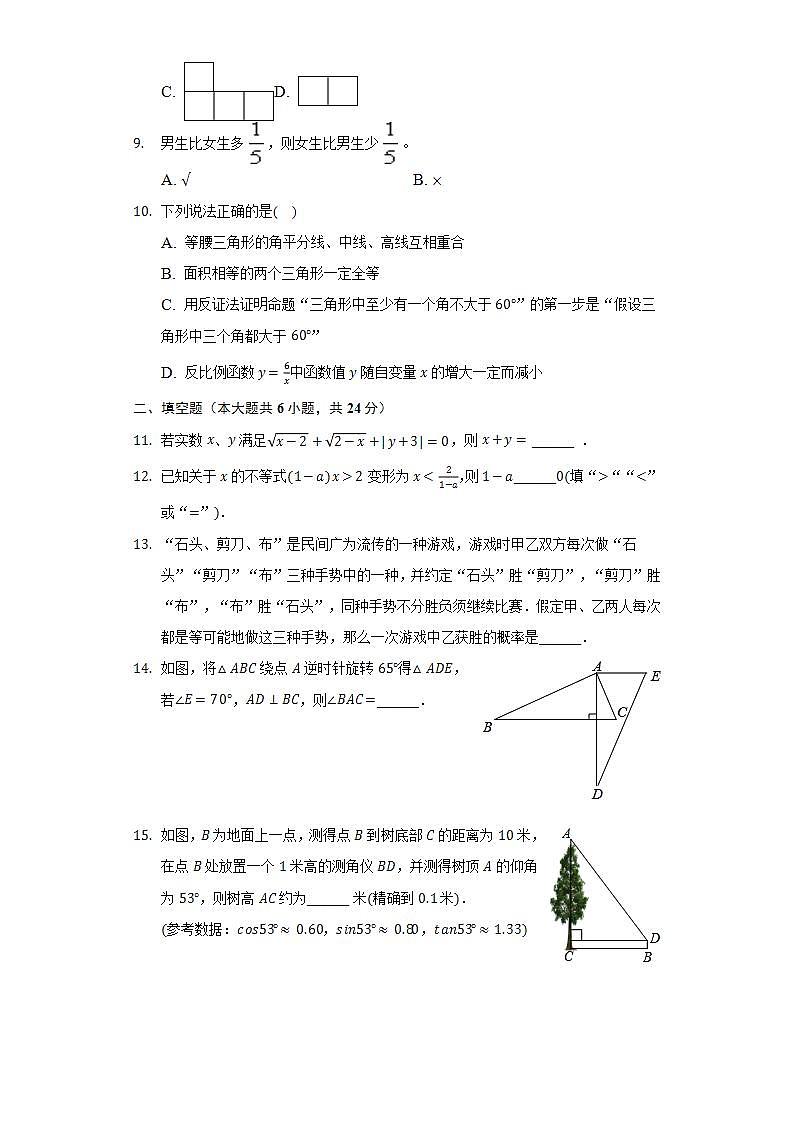 C. D.
9. 男生比女生多 1/5 ,则女生比男生少 1/5 。
A. √ B. ×
10. 下列说法正确的是( )
A. 等腰三角形的角平分线、中线、高线互相重合
B. 面积相等的两个三角形一定全等
C. 用反证法证明命题“三角形中至少有一个角不大于60°”的第一步是“假设三
角形中三个角都大于60°”
D. 反比例函数y=6/x中函数值y随自变量x的增大一定而减小
二、填空题（本大题共6小题，共24分）
11. 若实数x、y满足√(x−2)+√(2−x)+|y+3|=0，则x+y= ______ .
12. 已知关于x的不等式(1−a)x>2变形为x<2/(1−a),则1−a______0(填“>““<”
或“=”).
13. “石头、剪刀、布”是民间广为流传的一种游戏，游戏时甲乙双方每次做“石
头”“剪刀”“布”三种手势中的一种，并约定“石头”胜“剪刀”，“剪刀”胜
“布”，“布”胜“石头”，同种手势不分胜负须继续比赛．假定甲、乙两人每次
都是等可能地做这三种手势，那么一次游戏中乙获胜的概率是______．
14. 如图，将△ABC绕点A逆时针旋转65°得△ADE，
若∠E=70°，AD⊥BC，则∠BAC=______．
A
E
C
B
D
15. 如图，B为地面上一点，测得点B到树底部C的距离为10米，
在点B处放置一个1米高的测角仪BD，并测得树顶A的仰角
为53°，则树高AC约为______ 米(精确到0.1米)．
(参考数据：cos53°≈0.60，sin53°≈0.80，tan53°≈1.33)
A
D
C
B